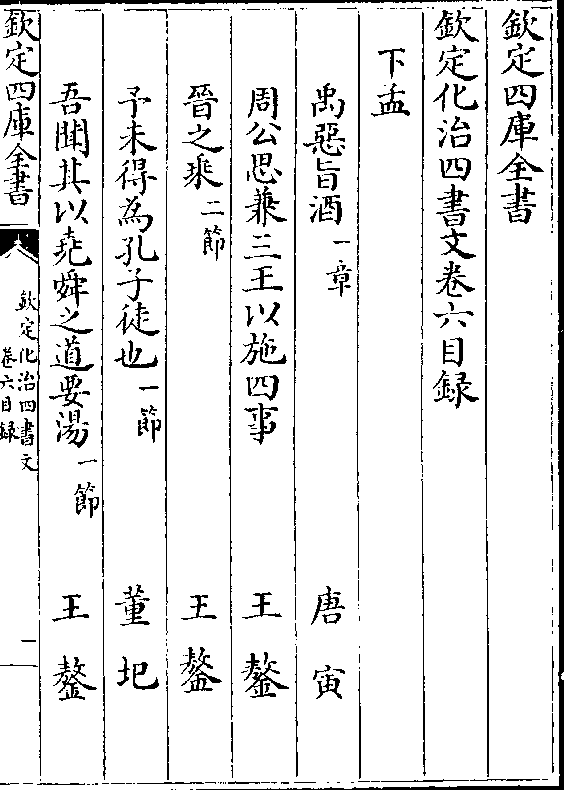 欽定四庫全書
欽定化治四書文卷六目録
下孟
禹惡旨酒一章 唐寅
周公思兼三王以施四事 王鏊
晉之乘二節 王鏊
予未得為孔子徒也一節 董圯
吾聞其以堯舜之道要湯一節 王鏊
欽定四庫全書
欽定化治四書文
卷六目録
一